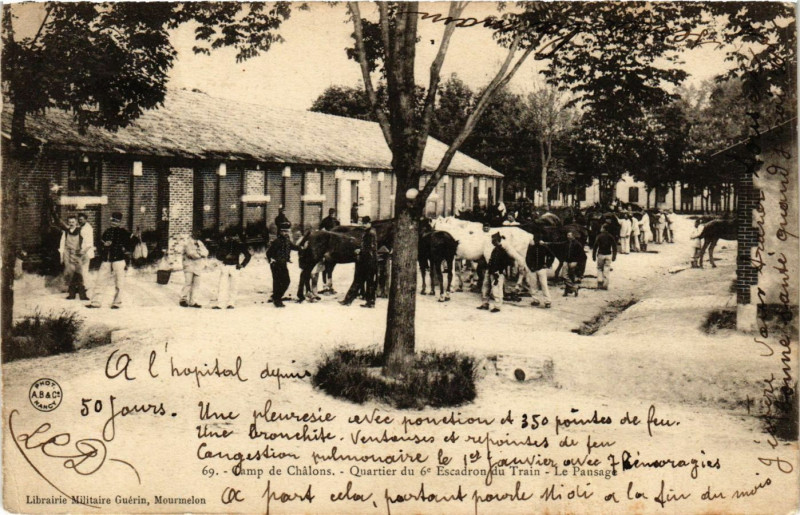 A l'hopital depuis
50 Jours. Une pleuresie avec ponction et 350 pointes de feu.
Une bronchite. Ventouses et repointes de feu
Congestion pulmonaire le 1er Janvier avec 7 hémoragies
69. - Camp de Châlons. - Quartier du 6e Escadron du Train - Le Pansage
A part cela, partant pour le Midi a la fin du mois
PHOT
A.B & Cie
NANCY
Librairie Militaire Guérin, Mourmelon
J'espère
bonne santé quand